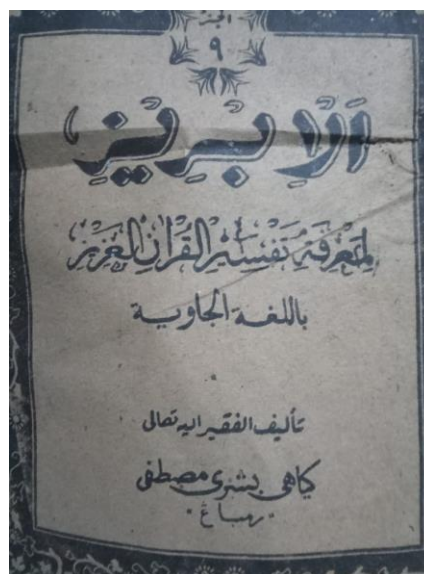 الجزء
٩
اَلْاِبْرِيْزِ
لِمَعْرِفَةِ تَفْسِيْرِ الْقُرْاٰنِ الْعَزِيْزِ
باللغة الجاوية
تأليف الفقير اليه تعالى
كياهى بشرى مصطفى
رمباڠ